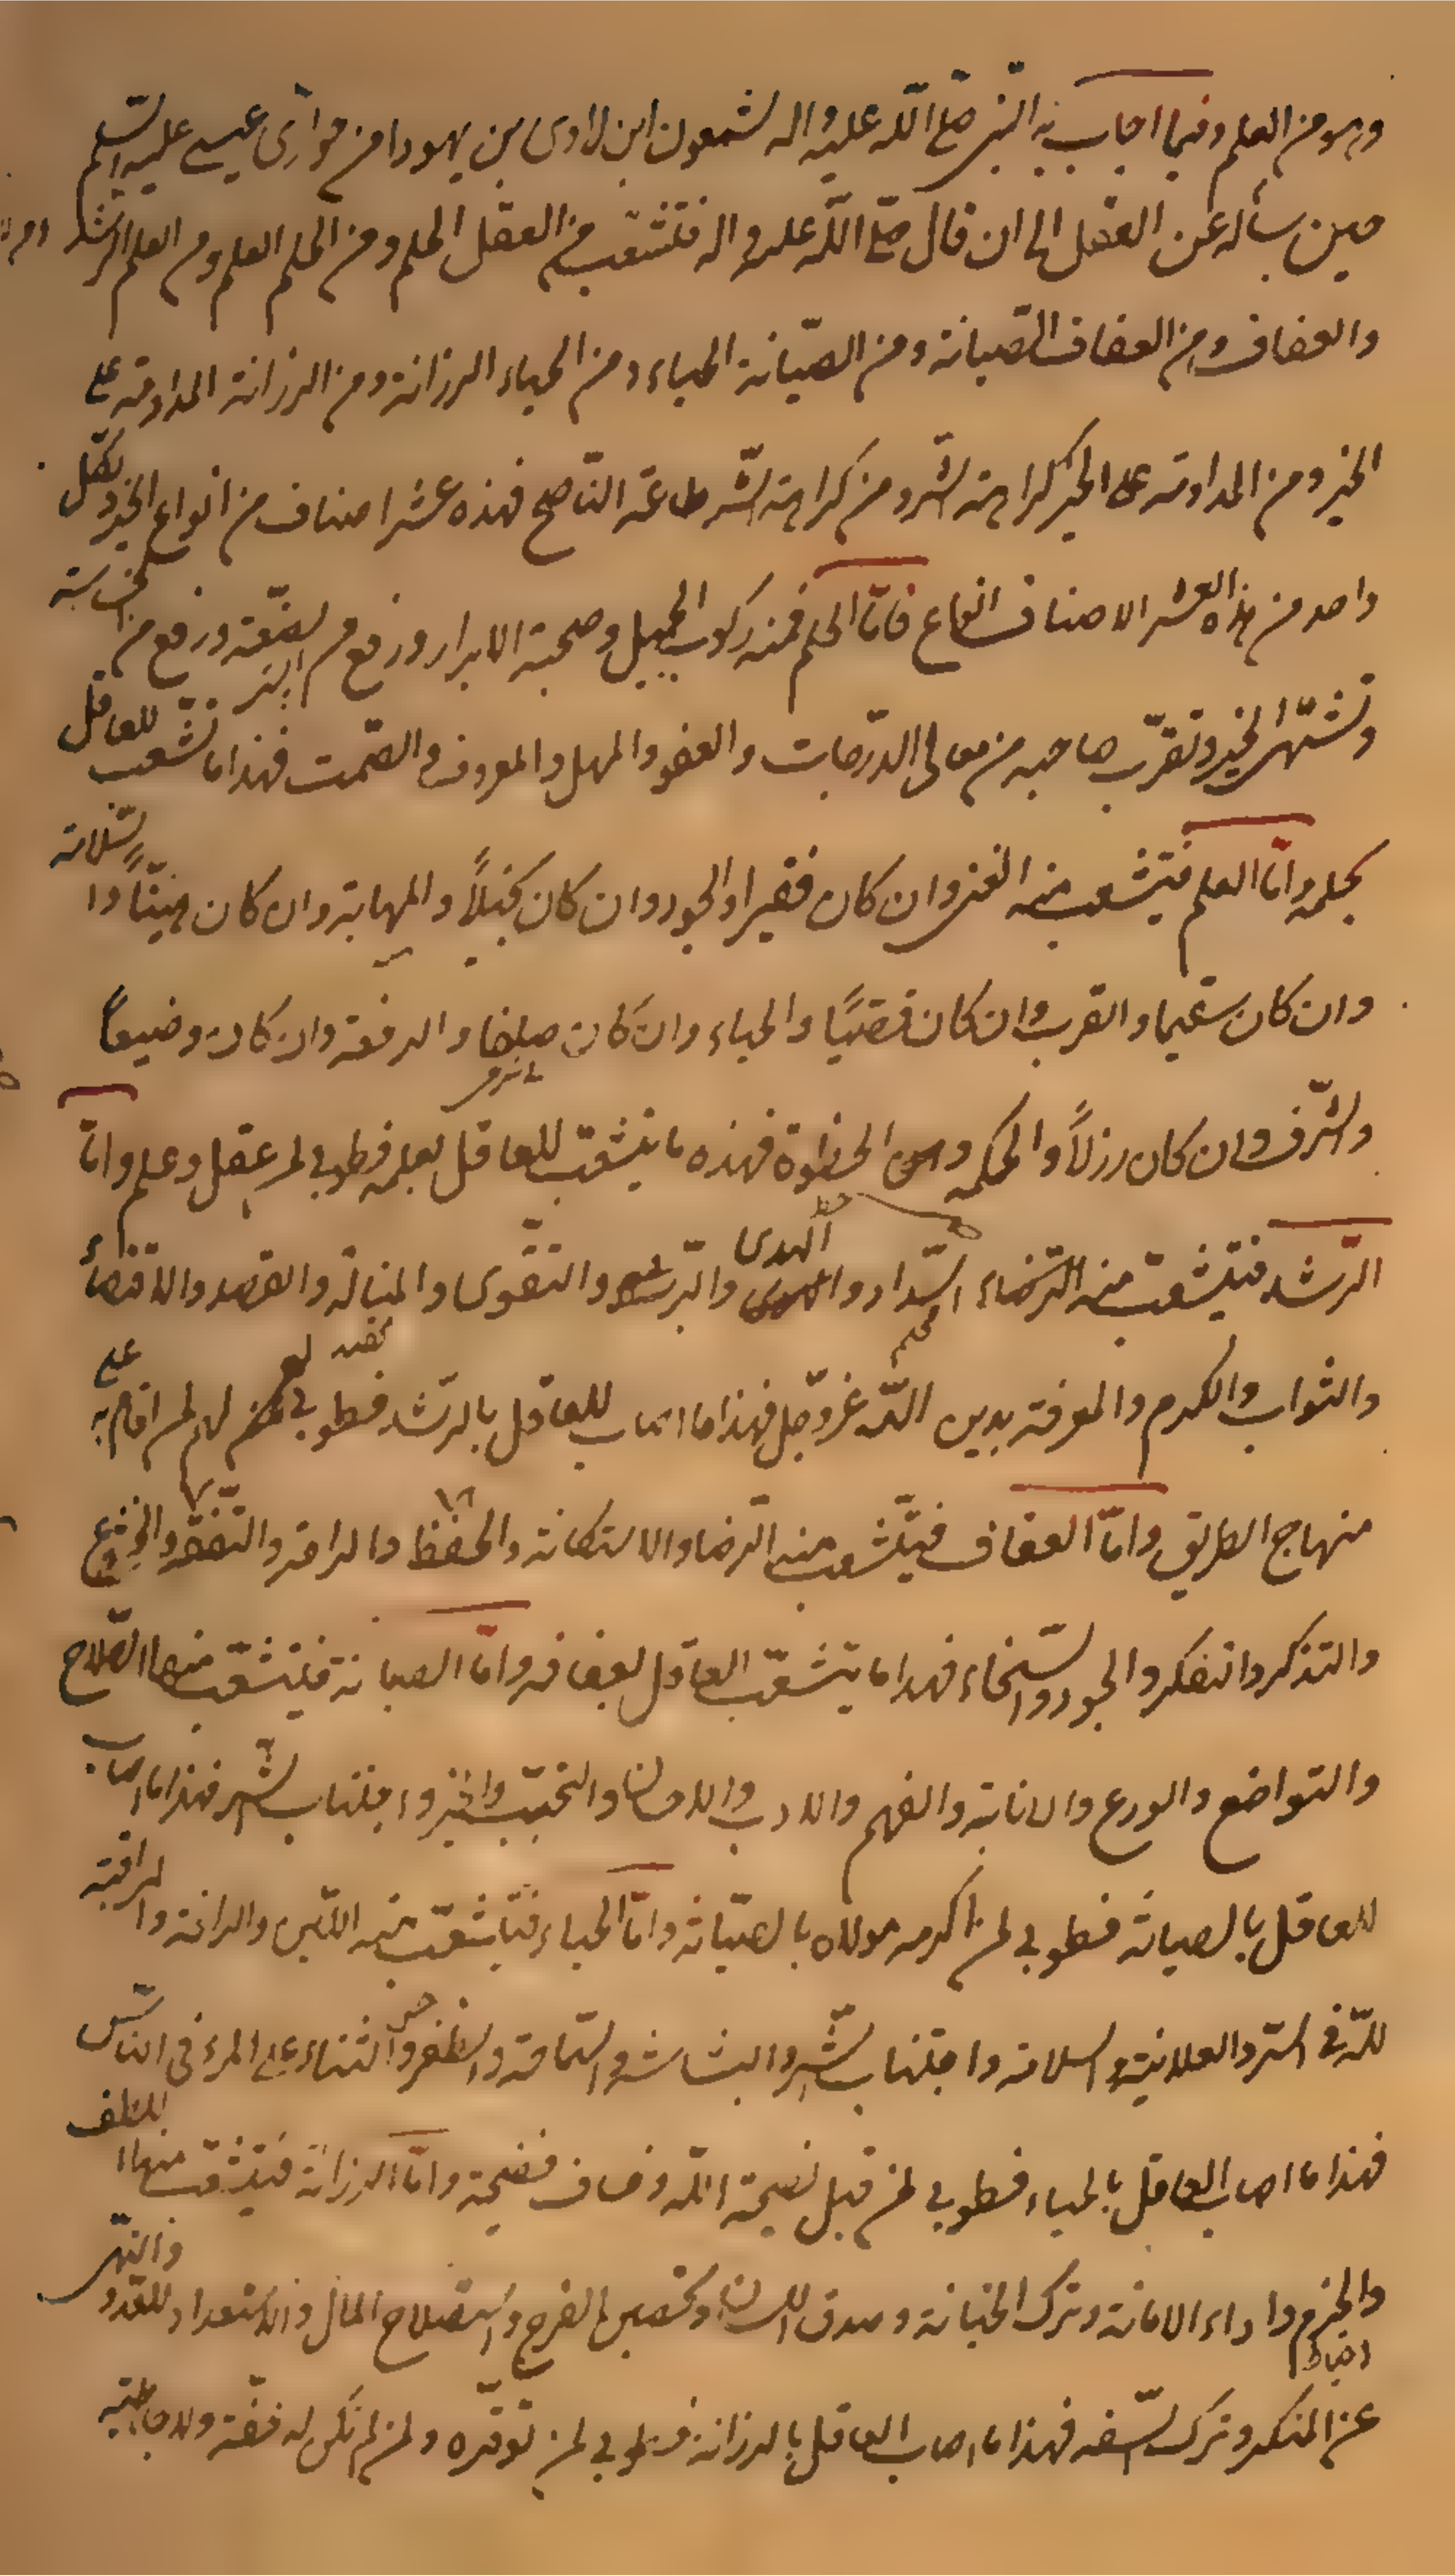 وهو من العلم وفيما اجاب به النبي صلّى الله عليه واله لشمعون ابن لاوى بن يهودا من حوارى عيسى عليه السلم
حين سأله عن العقل الى ان قال صلّى الله عليه واله فتشعب من العقل الحلم ومن الحلم العلم ومن العلم الرشد
والعفاف ومن العفاف الصيانة ومن الصّيانة الحياء ومن الحياء الرزانة ومن الرزانة المداومة على
الخير ومن المداومة على الخير كراهة الشر ومن كراهة الشّر طاعة النّاصح فهذه عشر اصناف من انواع الخير ولكل
واحد من هذه العشر الاصناف انواع فامّا الحلم فمنه ركوب الجميل وصحبة الابرار ورفع من الضّعة ورفع من الخساسة
وتشهّى الخير وتقرّب صاحبه من معالى الدّرجات والعفو والمهل والمعروف والصّمت فهذا ما تشعب للعاقل
بحلمه وامّا العلم فيتشعب منه الغنى وان كان فقيرا والجود وان كان بخيلاً والمهابة وان كان هيّناً والسّلامة
وان كان سقيما والقرب وان كان قصيّاً والحياء وان كان صلفا والرفعة وان كان وضيعاً
والشّرف وان كان رزلاً والحكمة والحظوة فهذه ما يتشعّب للعاقل بعلمه فطوبى لمن عقل وعلم وامّا
الرّشد فيتشعّب منه السّداد والهدى والبرّ والتقوى والمنالة والقصد والاقتصاد
والثواب والكرم والمعرفة بدين اللّه عزّوجلّ فهذا ما اصاب للعاقل بالرّشد فطوبى لمن اقام به على
منهاج الطريق وامّا العفاف فيتشعّب منه الرّضا والاستكانة والحفظ والراحة والتّفقّد والخشوع
والتذكر والتفكر والجود والسّخاء فهذا ما يتشعّب العاقل بعفافه وامّا الصيانة فيتشعّب منها الصّلاح
والتواضع والورع والانابة والفهم والادب والاحسان والتحبّب والخير واجتناب الشّر فهذا ما اصاب
للعاقل بالصيانة فطوبى لمن اكرمه مولاه بالصّيانة وامّا الحياء فيتشعّب منه اللّين والرافة والمراقبة
للّه فى السّر والعلانية والسلامة واجتناب الشّر والبشاشة والسّماحة والظفر وحسن الثناء على المرء فى النّاس
فهذا ما اصاب العاقل بالحياء فطوبى لمن قبل نصيحة اللّه وخاف فضيحته وامّا الرزانة فيتشعّب منها اللطف
والحزم واداء الامانة وترك الخيانة وصدق اللسان وتحصين الفرج واستصلاح المال والاستعداد للعدو والنّهى
عن المنكر وترك السّفه فهذا ما اصاب العاقل بالرزانة فطوبى لمن توقّره ولمن لم تكن له خفّة ولا جاهلية